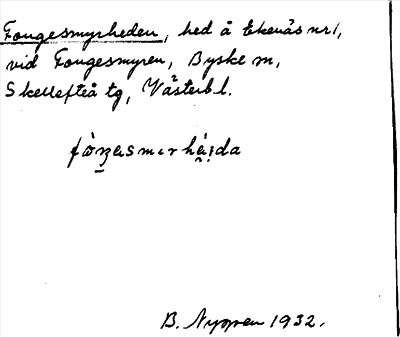 Fougesmyrheden, hed å Ekenäs nr 1,
vid Fougesmyren, Byske sn,
Skellefteå tg, Västerb l.
B. Nyqren 1932.